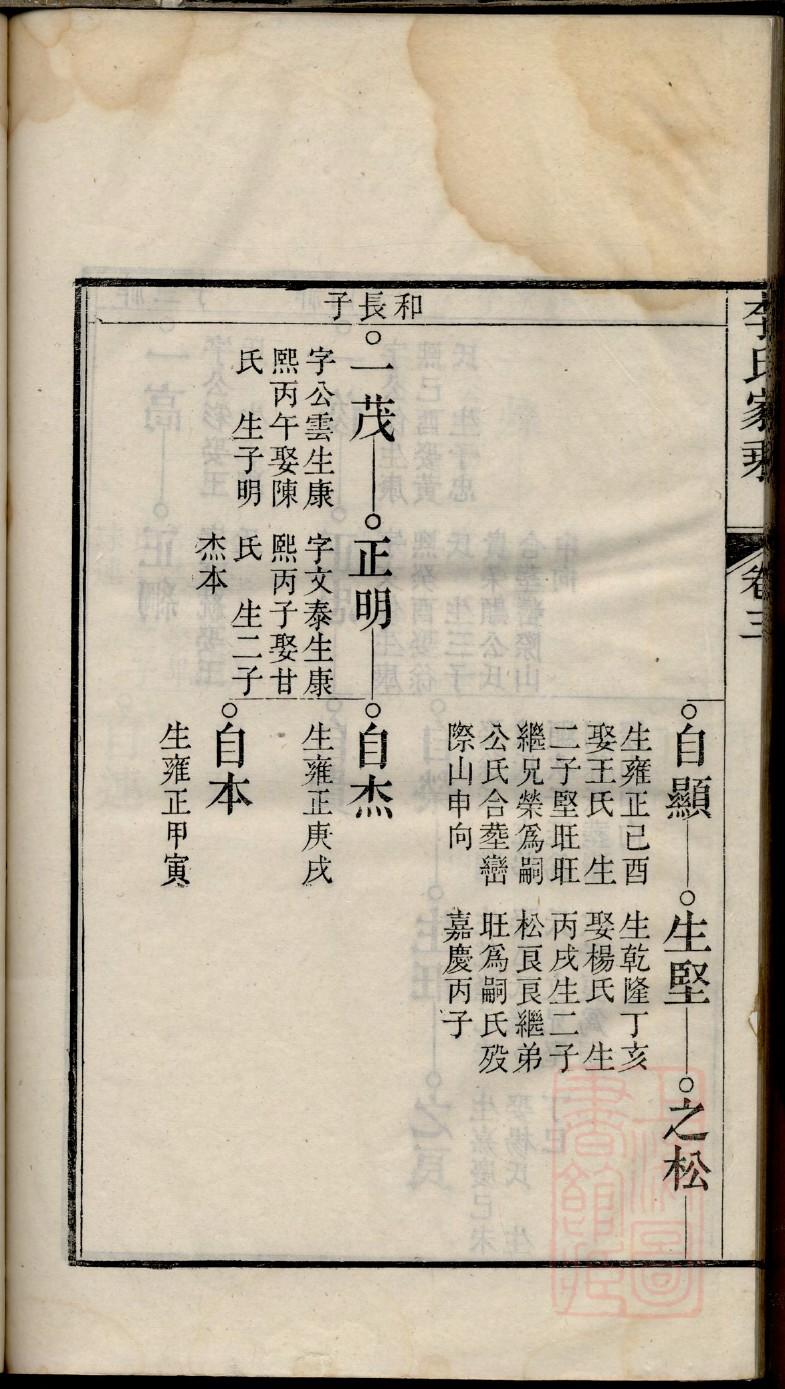 李氏家乘
卷三
自顯
生雍正己酉
娶王氏 生
二子堅旺旺
繼兄榮爲嗣
公氏合塟巒
際山申向
生堅
生乾隆丁亥
娶楊氏 生
丙戌生二子
松良良繼弟
旺爲嗣氏歿
嘉慶丙子
之松
和長子
一茂
字公雲生康
熙丙午娶陳
氏 生子明
正明
字文泰生康
熙丙子娶甘
氏 生二子
杰本
自杰
生雍正庚戌
自本
生雍正甲寅